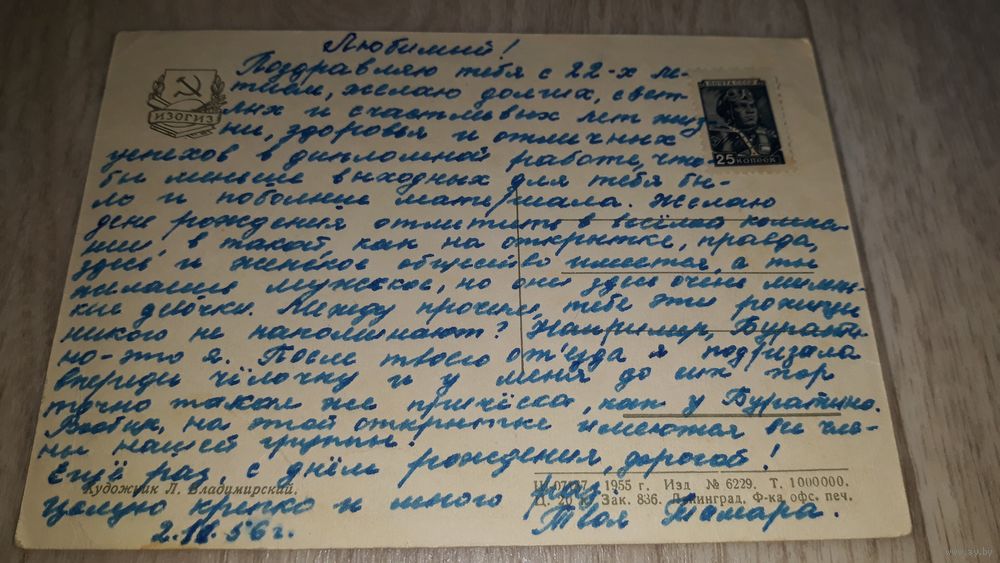 Любимый!
Поздравляю тебя с 22-х ле-
тием, желаю долгих, свет-
лых и счастливых лет жиз-
ни, здоровья и отличных
успехов в дипломной работе, что-
бы меньше выходных для тебя бы-
ло и побольше материала. Желаю
день рождения отметить в весёлой компа-
нии, в такой, как на открытке, правда,
здесь и женское общество имеется, а ты
желаешь мужское, но они здесь очень милень-
кие девочки. Между прочим, тебе эти рожицы
никого не напоминают? Например, Бурати-
но-это я. После твоего от'езда я подрезала
впереди чёлочку и у меня до сих пор
точно такая же причёска, как у Буратино.
Вообщем, на этой открытке имеются все чле-
ны нашей группы.
Ещё раз с днём рождения, дорогой!
Целую крепко и много раз,
Твоя Тамара.
56 г.
ИЗОГИЗ
ПОЧТА СССР
25 КОПЕЕК
Художник Л. Владимирский.
1955 г. Изд № 6229. Т. 1000000.
Зак. 836. Ленинград, Ф-ка офс. печ.
www.ay.by